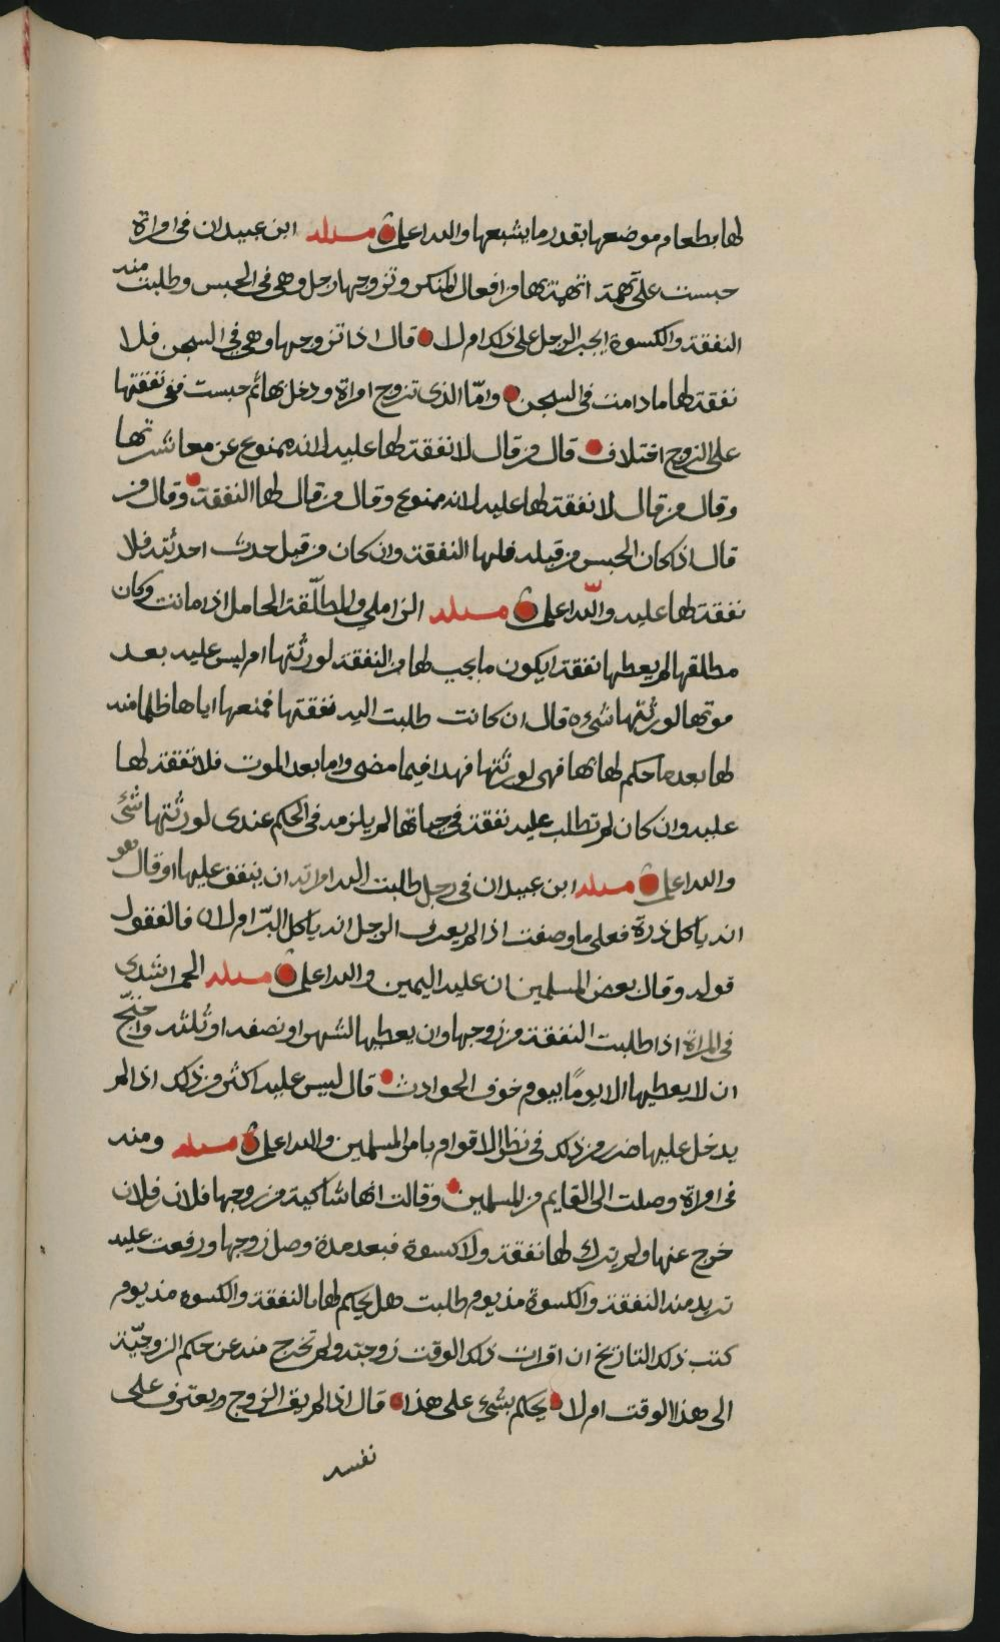 لها بطعام وموضعها بقدر ما يشبعها والله اعلم مسئلة ابن عبيدان في امراة
حبست على تهمة اتهمت بها من افعال المنكر وتزوجها رجل وهي في الحبس وطلبت منه
النفقة والكسوة ايجبر الرجل على ذلك ام لا قال اذا تزوجها وهي في السجن فلا
نفقة لها ما دامت في السجن وامّا الذي تزوج امراة ودخل بها ثم حبست ففي نفقتها
على الزوج اختلاف قال من قال لا نفقة لها عليه لانه ممنوع عن معاشرتها
وقال من قال لا نفقة لها عليه لانه ممنوع وقال من قال لها النفقة وقال من
قال اذا كان الحبس من قبله فلها النفقة وان كان من قبل حدث احدثته فلا
نفقة لها عليه والله اعلم مسئلة الزاملي والمطلّقة الحامل اذا ماتت وكان
مطلقها لم يعطها نفقة ايكون ما يجب لها من النفقة لورثتها ام ليس عليه بعد
موتها لورثتها شيء قال ان كانت طلبت اليه نفقتها فمنعها اياها ظلما منه
لها بعد ما حكم لها بها فهي لورثتها فهذا فيما مضى واما بعد الموت فلا نفقة لها
عليه وان كان لم تطلب عليه نفقة في حياتها لم يلزمه في الحكم عندي لورثتها شئ
والله اعلم مسئلة ابن عبيدان في رجل طلبت اليه امراته ان ينفق عليها وقال هو
انه ياكل ذرة فعلى ما وصفت اذا لم يعرف الرجل انه ياكل البرّ ام لا فالقول
قوله وقال بعض المسلمين ان عليه اليمين والله اعلم مسئلة الحمراشدي
في المراة اذا طلبت النفقة من زوجها وان يعطيها لشهر او نصفه او ثلثه واحتجّ
ان لا يعطيها الا يومًا بيوم خوف الحوادث قال ليس عليه اكثر من ذلك اذا لم
يدخل عليها ضرر من ذلك في نظر الاقوام بامر المسلمين والله اعلم مسئلة ومنه
في امراة وصلت الى القايم من المسلمين وقالت انها شاكية من زوجها فلان فلان
خرج عنها ولم يترك لها نفقة ولا كسوة فبعد مدة وصل زوجها ورفعت عليه
تريد منه النفقة والكسوة مذ يوم طلبت هل يحكم لها بالنفقة والكسوة مذ يوم
كتب ذلك التاريخ ان اقرانت ذلك الوقت زوجته ولم تخرج منه عن حكم الزوجيّة
الى هذا الوقت ام لا يحكم بشئ على هذا قال اذا لم يقر الزوج ويعترف على
نفسه